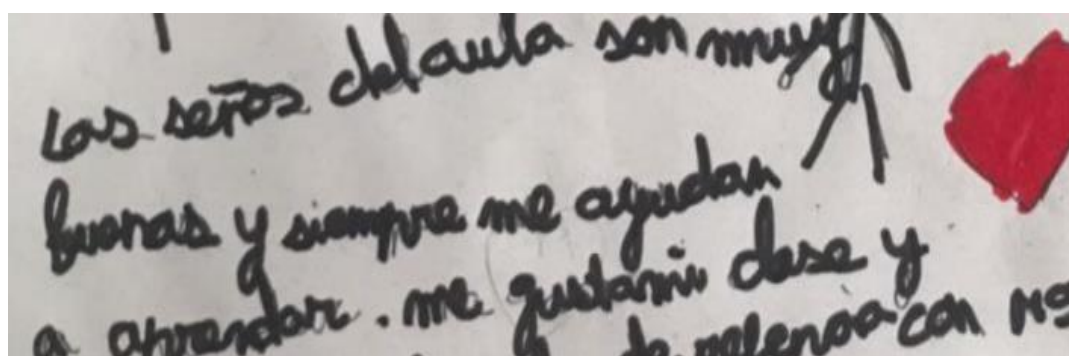 Las seños del aula son muy
buenas y siempre me ayudan
a aprender. me gusta mi clase y
con